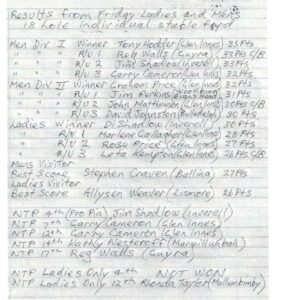 Results from Friday Ladies and Mens
18 hole individual stableford
Men Div I Winner Tony Hodler (Glen Innes) 35 Pts
" " " R/U 1 Reg Walls (Guyra) 33 Pts C/B
" " " R/U 2 Jim Shadlow (Inverell) 33 Pts
" " " R/U 3 Garry Cameron (Glen Innes) 32 Pts
Men Div II Winner Graham Price (Glen Innes) 32 Pts
" " " R/U 1 Jim 31 Pts
" " " R/U 2 John (Glen Innes) 30 Pts C/B
" " " R/U 3 David Johnston 30 Pts
Ladies Winner Di Shadlow (Inverell) 30 Pts
" R/U 1 Marlene Gallagher (Glen Innes) 28 Pts
" R/U 2 Rose Price (Glen Innes) 27 Pts
" R/U 3 Leta Kempton (Glen Innes) 26 Pts C/B
Mens Visitor
Best Score Stephen Craven (Ballina) 27 Pts
Ladies Visitor
Best Score Allysen Weaver (Lismore) 26 Pts
NTP 4th (Pro Pin) Jim Shadlow (Inverell)
NTP Garry Cameron (Glen Innes)
NTP 12th Garry Cameron (Glen Innes)
NTP 14th Kathy Nesteroff (Murwillumbah)
NTP 17th Reg Walls (Guyra)
NTP Ladies Only 4th NOT WON
NTP Ladies Only 12th Rhonda Taylor (Mullumbimby)